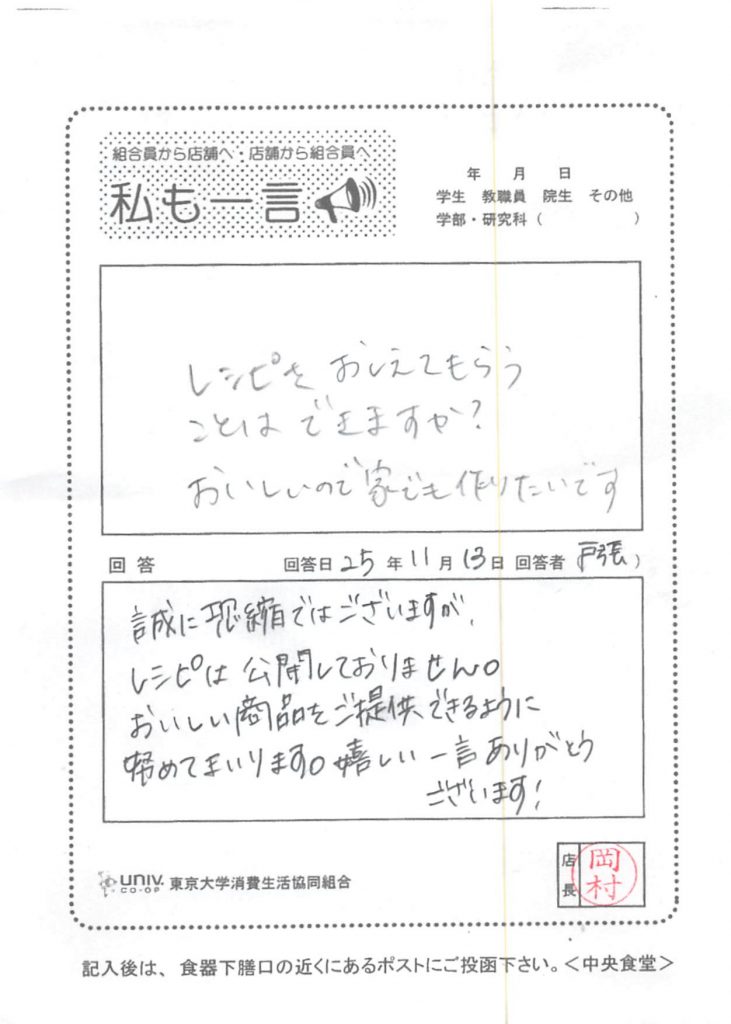 組合員から店舗へ・店舗から組合員へ
私も一言
年 月 日
学生 教職員 院生 その他
学部・研究科（ ）
レシピを おしえてもらう
ことは できますか？
おいしいので 家でも 作りたいです
回答 回答日 25 年 11 月 13 日 回答者 戸張）
誠に恐縮ではございますが、
レシピは 公開しておりません。
おいしい商品をご提供できるように
努めてまいります。嬉しい 一言 ありがとう
ございます！
店長 岡村
UNIV. CO-OP 東京大学消費生活協同組合
記入後は、食器下膳口の近くにあるポストにご投函下さい。＜中央食堂＞